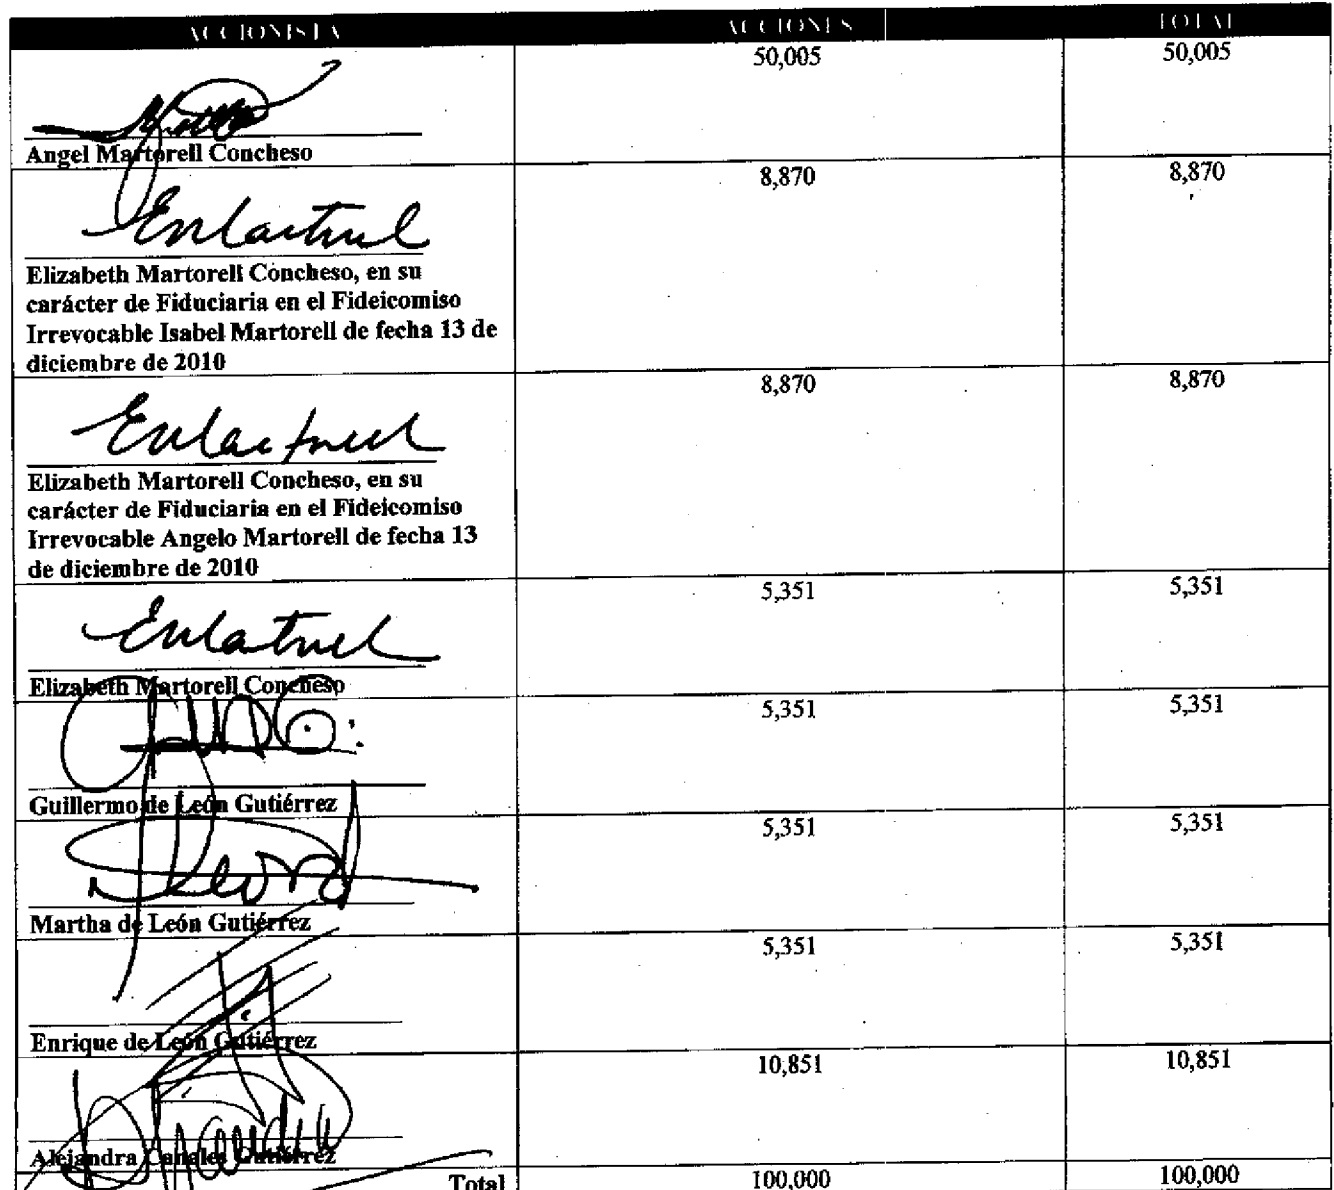 ACCIONISTA ACCIONES TOTAL
50,005 50,005
Angel Martorell Concheso
8,870 8,870
Elizabeth Martorell Concheso, en su
carácter de Fiduciaria en el Fideicomiso
Irrevocable Isabel Martorell de fecha 13 de
diciembre de 2010
8,870 8,870
Elizabeth Martorell Concheso, en su
carácter de Fiduciaria en el Fideicomiso
Irrevocable Angelo Martorell de fecha 13
de diciembre de 2010
5,351 5,351
Elizabeth Martorell Concheso
5,351 5,351
Guillermo de León Gutiérrez
5,351 5,351
Martha de León Gutiérrez
5,351 5,351
Enrique de León Gutiérrez
10,851 10,851
Alejandra Canales Gutiérrez
Total 100,000 100,000